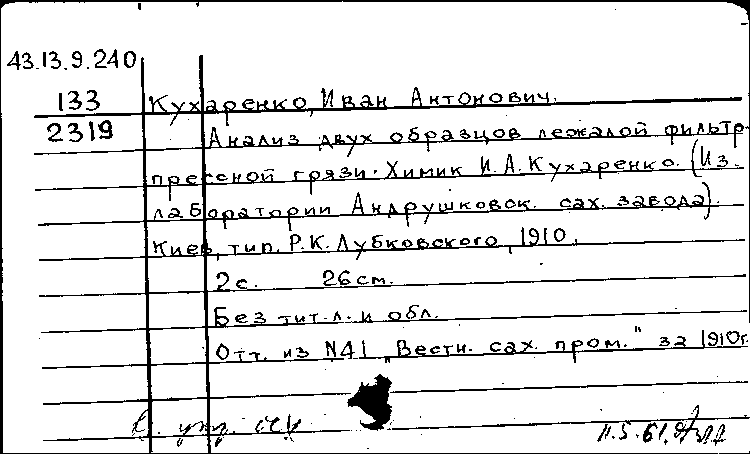 43.13.9.240
133
2319
Кухаренко, Иван Антонович.
Анализ двух образцов лежалой фильтр-
прессной грязи. Химик И.А. Кухаренко. (Из
лаборатории Андрушковск. сах. завода).
Киев, тип. Р.К. Лубковского, 1910.
2с. 26см.
Без тит. л. и обл.
Отт. из N41 „Вестн. сах. пром." за 1910г.
11.5.61.